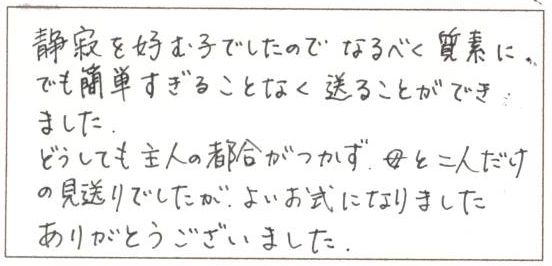 静寂を好む子でしたので なるべく質素に、
でも簡単すぎることなく送ることができ
ました.
どうしても主人の都合がつかず.母と二人だけ
の見送りでしたが.よいお式になりました
ありがとうございました.